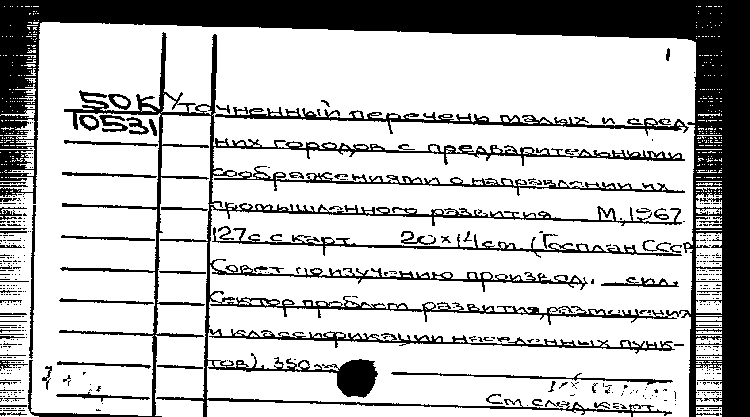 1
50К Уточненный перечень малых и сред-
10531
них городов с предварительными
соображениями о направлении их
промышленного развития. М, 1967
127с. с карт. 20×14 см. (Госплан СССР
Совет по изучению производ. сил.
Сектор проблем развития, размещения
и классификации населенных пунк-
тов). 350
См. след. карт.